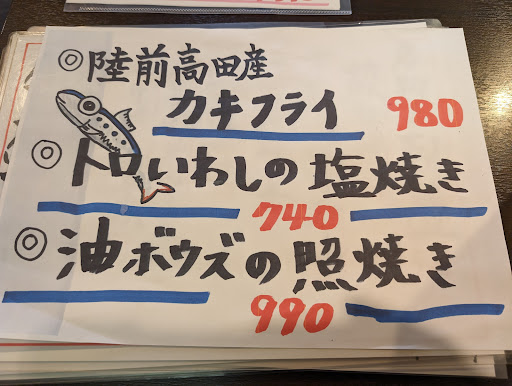 ◎陸前高田産
カキフライ 980
◎トロいわしの塩焼き
740
◎油ボウズの照焼き
990